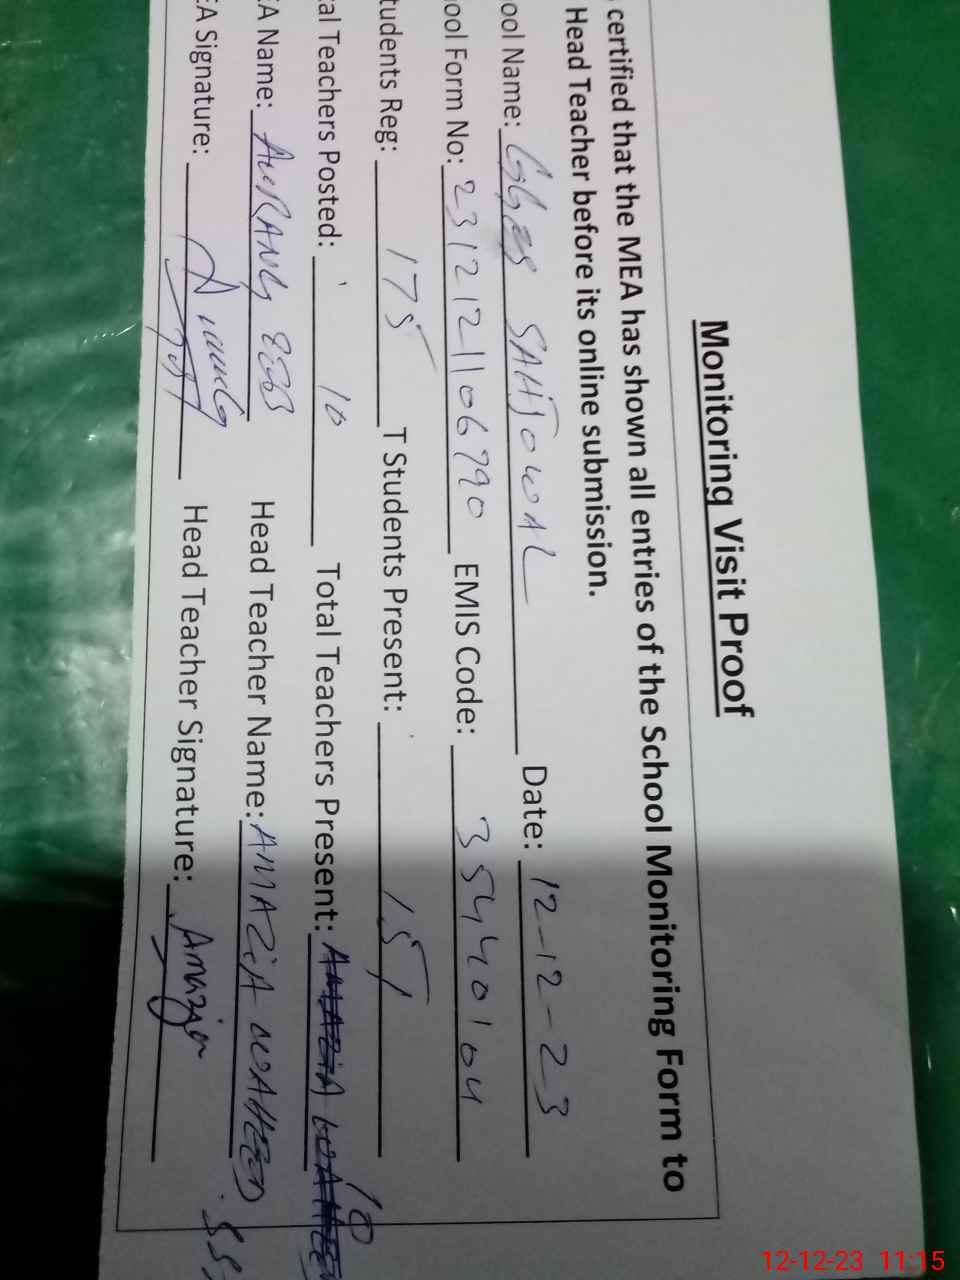 Monitoring Visit Proof
certified that the MEA has shown all entries of the School Monitoring Form to
Head Teacher before its online submission.
ool Name: GGES SAHJOWAL Date: 12-12-23
ool Form No: 2312121106790 EMIS Code: 35440104
tudents Reg: 175 T Students Present: 151
al Teachers Posted: 10 Total Teachers Present: AMAZIA WAHEED 10
EA Name: AURANG ZEB Head Teacher Name: AMAZIA WAHEED
EA Signature: Head Teacher Signature: Amazia
12-12-23 11:15